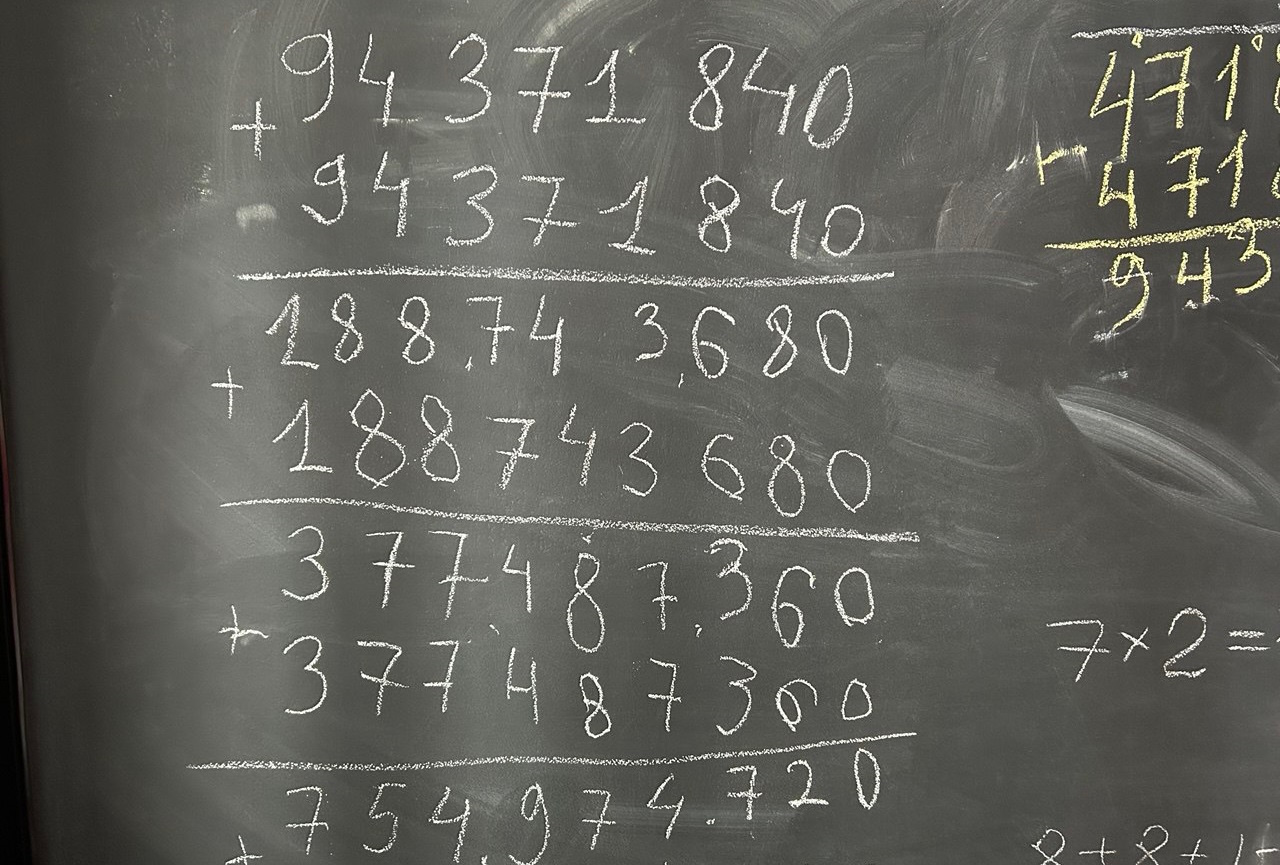 94 371 840
+
94 371 840
188,74 3,680
+
188 743 680
377,487,360
+
377 487 360
754,974.720
+
471
+
471
943
7×2=
8+8+1+